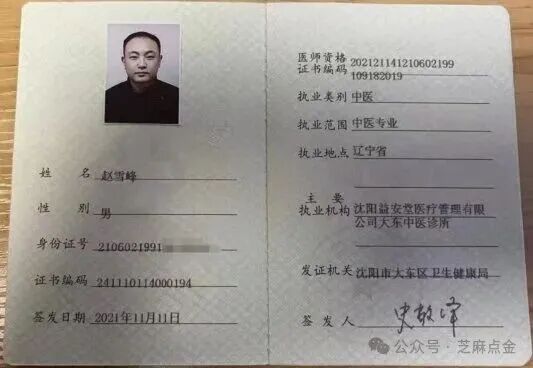 姓 名 赵雪峰
性 别 男
身份证号 2106021991
证书编码 241110114000194
签发日期 2021年11月11日
医师资格 202121141210602199
证书编码 109182019
执业类别 中医
执业范围 中医专业
执业地点 辽宁省
主 要 沈阳益安堂医疗管理有限
执业机构 公司大东中医诊所
发证机关 沈阳市大东区卫生健康局
签 发 人 史敬泽
公众号 · 芝麻点金